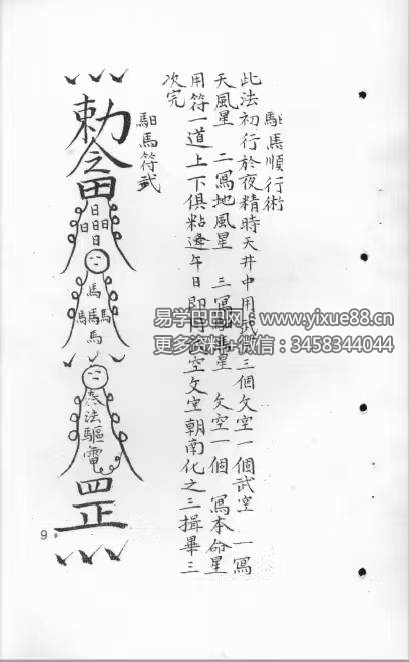 馹馬順行術
此法初行於夜精時天井中用武三個文空一個武空一寫
天風星 二寫地風星 三寫星 文空一個 寫本命星
用符一道上下俱粘逢午日即空文宝朝南化之三揖畢三
次完
馹馬符式
勅令
日
日日日
日
馬
馬馬馬
馬
奉法驅雷
罡
9
易学巴巴网:www.yixue88.cn
更多资料+微信:3458344044